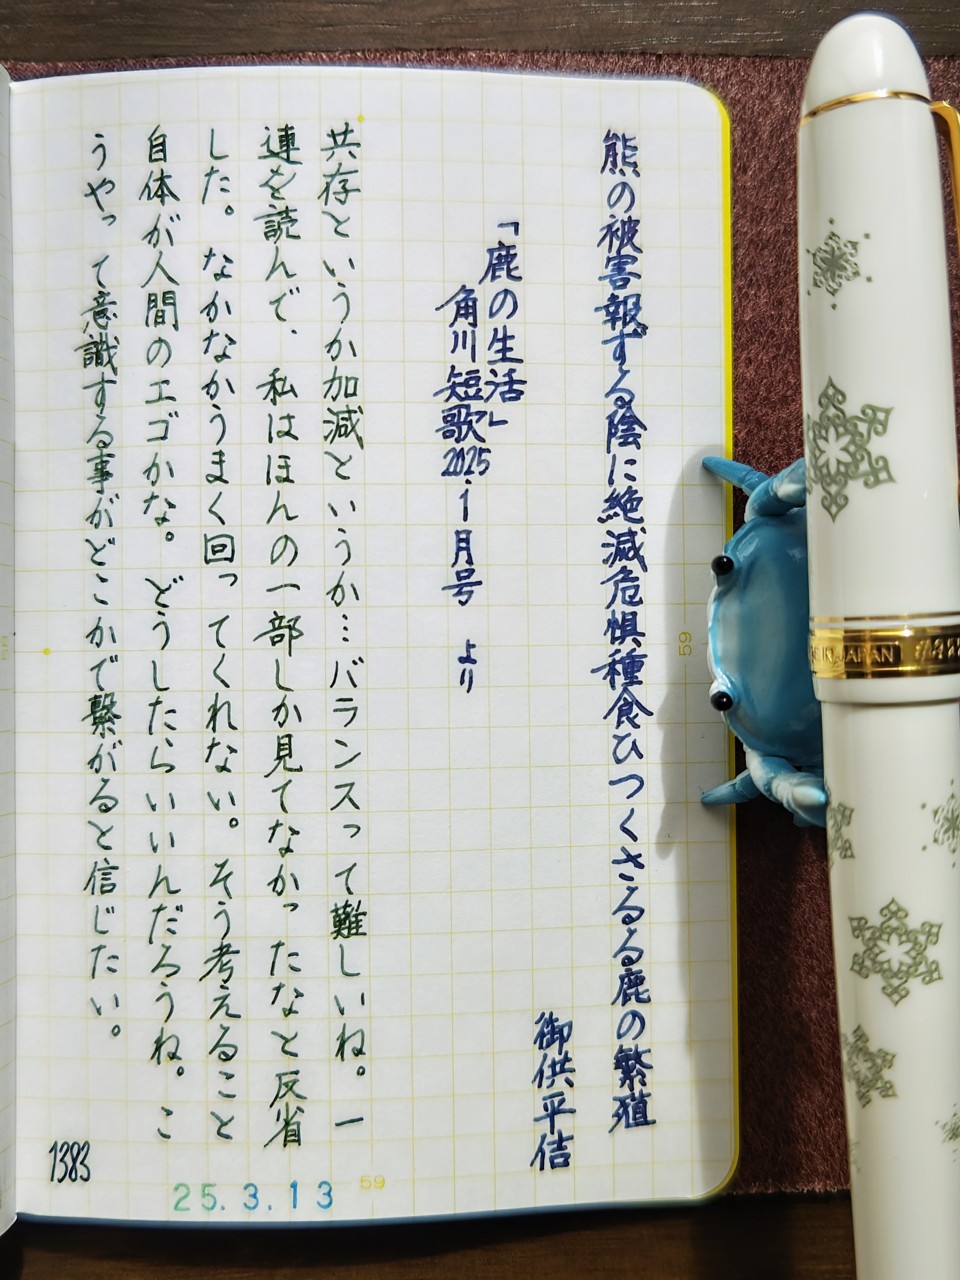 熊の被害報ずる陰に絶滅危惧種食ひつくさるる鹿の繁殖
御供平佶
「鹿の生活」
角川短歌2025.1月号 より
共存というか加減というか…バランスって難しいね。一
連を読んで、私はほんの一部しか見てなかったなと反省
した。なかなかうまく回ってくれない。そう考えること
自体が人間のエゴかな。どうしたらいいんだろうね。こ
うやって意識する事がどこかで繋がると信じたい。
1383
25.3.13
59
59
JAPAN